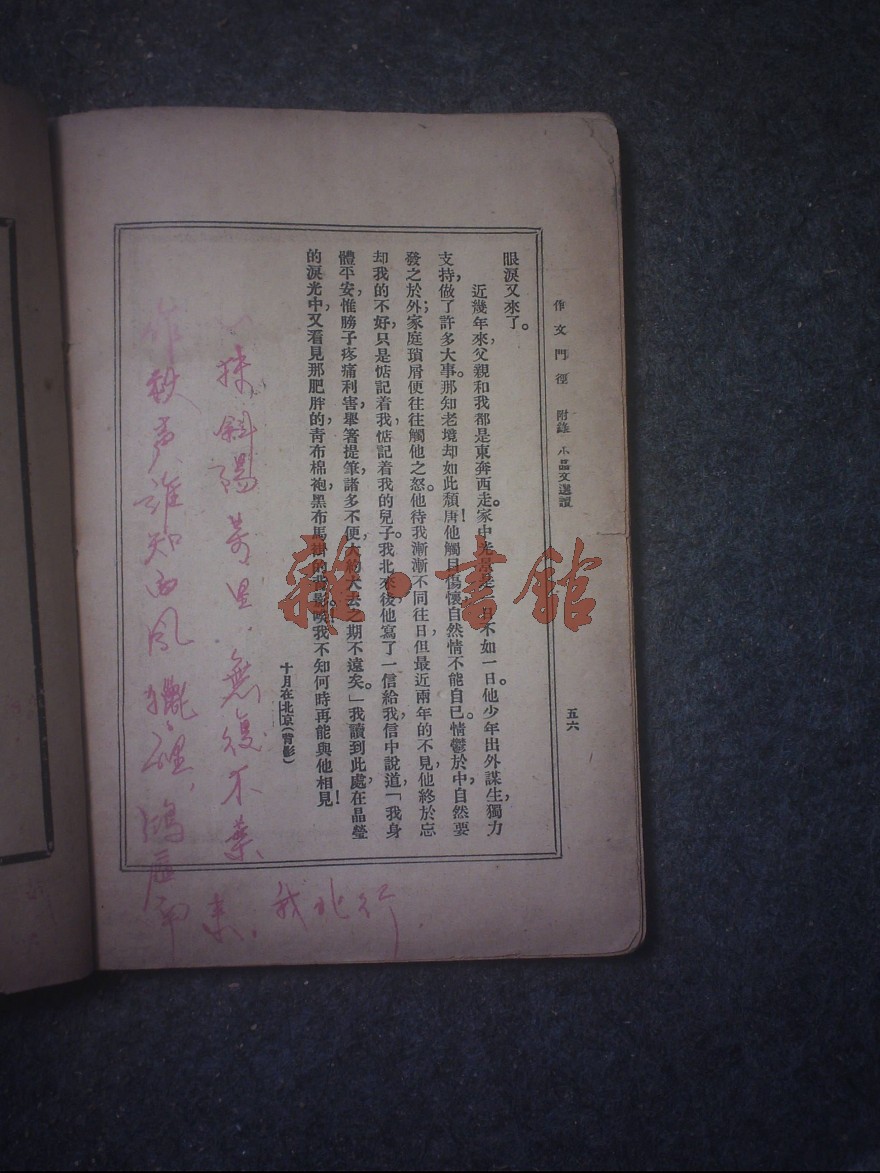 作文門徑 附錄 小品文選讀
五六
眼淚又來了。
近幾年來,父親和我都是東奔西走,家中光景是一日不如一日。他少年出外謀生,獨力
支持,做了許多大事。那知老境却如此頹唐!他觸目傷懷,自然情不能自已。情鬱於中,自然要
發之於外;家庭瑣屑便往往觸他之怒。他待我漸漸不同往日。但最近兩年的不見,他終於忘
却我的不好,只是惦記着我,惦記着我的兒子。我北來後,他寫了一信給我,信中說道,「我身
體平安,惟膀子疼痛利害,舉箸提筆,諸多不便,大約大去之期不遠矣。」我讀到此處,在晶瑩
的淚光中,又看見那肥胖的,青布棉袍,黑布馬掛的背影。唉!我不知何時再能與他相見!
十月在北京(背影)
抹斜陽暮里,無復木葉
作秋声誰知西風獵,鴻雁南
來,我北行
雜·書館